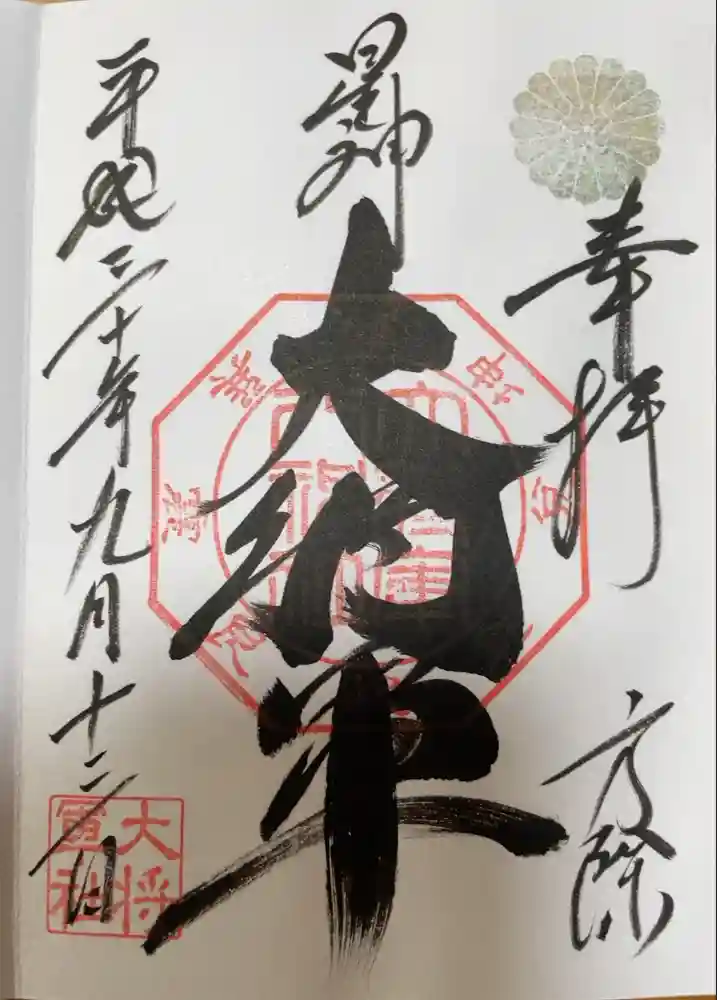 奉拝
方除
星神
大将軍
坤
巽
震
艮
平成三十年九月十二日
大将軍社